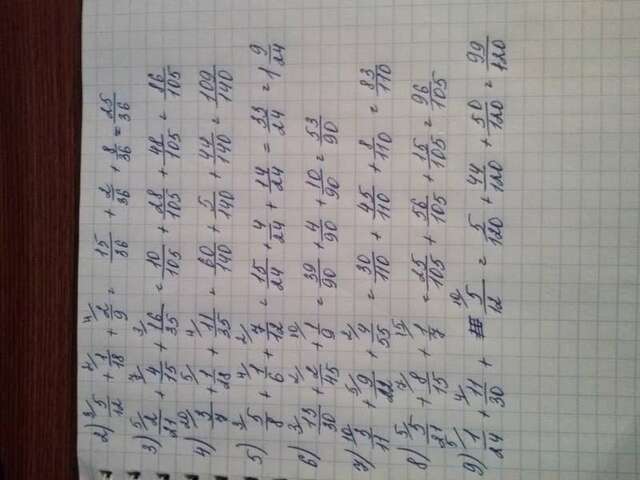 2) 3/ 5/12 + 2/ 1/18 + 4/ 2/9 = 15/36 + 2/36 + 8/36 = 25/36
3) 5/ 2/21 + 7/ 4/15 + 3/ 16/35 = 10/105 + 28/105 + 48/105 = 86/105
4) 20/ 3/7 + 5/ 1/28 + 4/ 11/35 = 60/140 + 5/140 + 44/140 = 109/140
5) 3/ 5/8 + 4/ 1/6 + 2/ 7/12 = 15/24 + 4/24 + 14/24 = 33/24 = 1 9/24
6) 3/ 13/30 + 2/ 2/45 + 10/ 1/9 = 39/90 + 4/90 + 10/90 = 53/90
7) 10/ 3/11 + 5/ 9/22 + 2/ 4/55 = 30/110 + 45/110 + 8/110 = 83/110
8) 5/ 5/21 + 7/ 8/15 + 15/ 1/7 = 25/105 + 56/105 + 15/105 = 96/105
9) 5/ 1/24 + 4/ 11/30 + 10/ 5/12 = 5/120 + 44/120 + 50/120 = 99/120